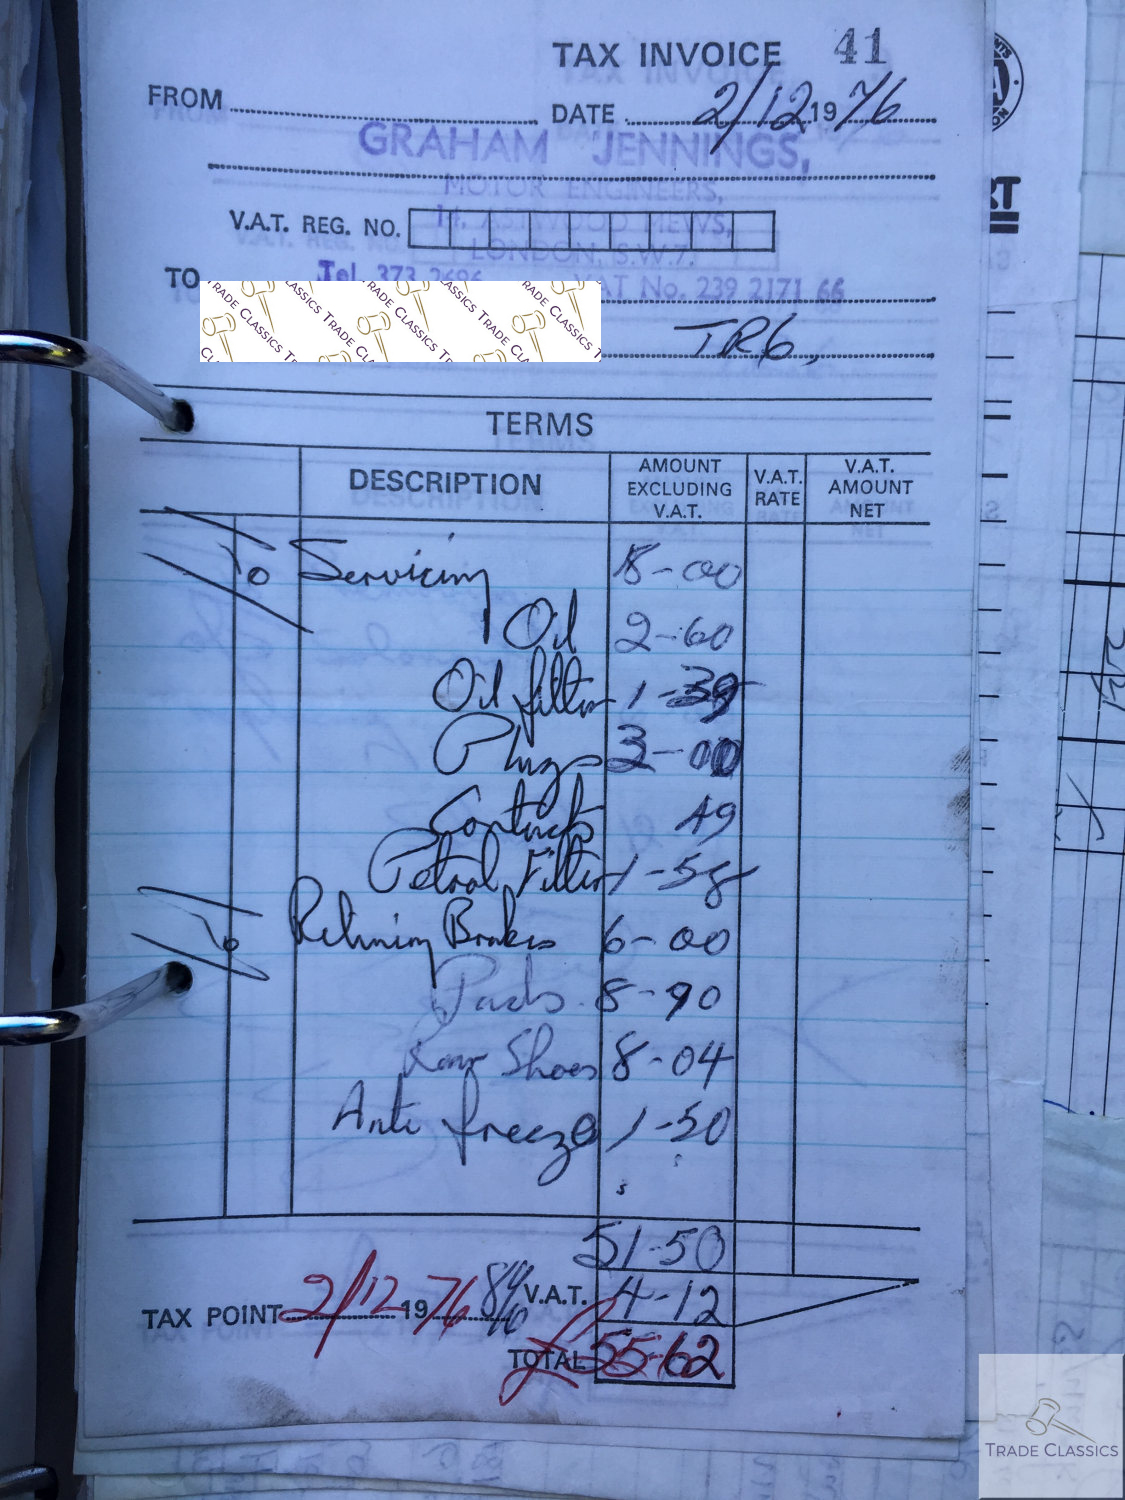 TAX INVOICE 41
FROM
DATE 2/12 1976
GRAHAM JENNINGS,
MOTOR ENGINEERS,
14, ASTWOOD MEWS,
V.A.T. REG. NO.
LONDON, S.W.7.
Tel. 373 2696 VAT No. 239 2171 66
TO
TR6,
TERMS
DESCRIPTION AMOUNT EXCLUDING V.A.T. V.A.T. RATE V.A.T. AMOUNT NET
To Servicing 18-00
Oil 2-60
Oil filter 1-39
Plugs 3-00
Contacts 49
Petrol Filter 1-58
To Relining Brakes 6-00
Pads 8-90
Rear Shoes 8-04
Anti freeze 1-50
51-50
TAX POINT 2/12 1976 8% V.A.T. 4-12
TOTAL £55-62
TRADE CLASSICS